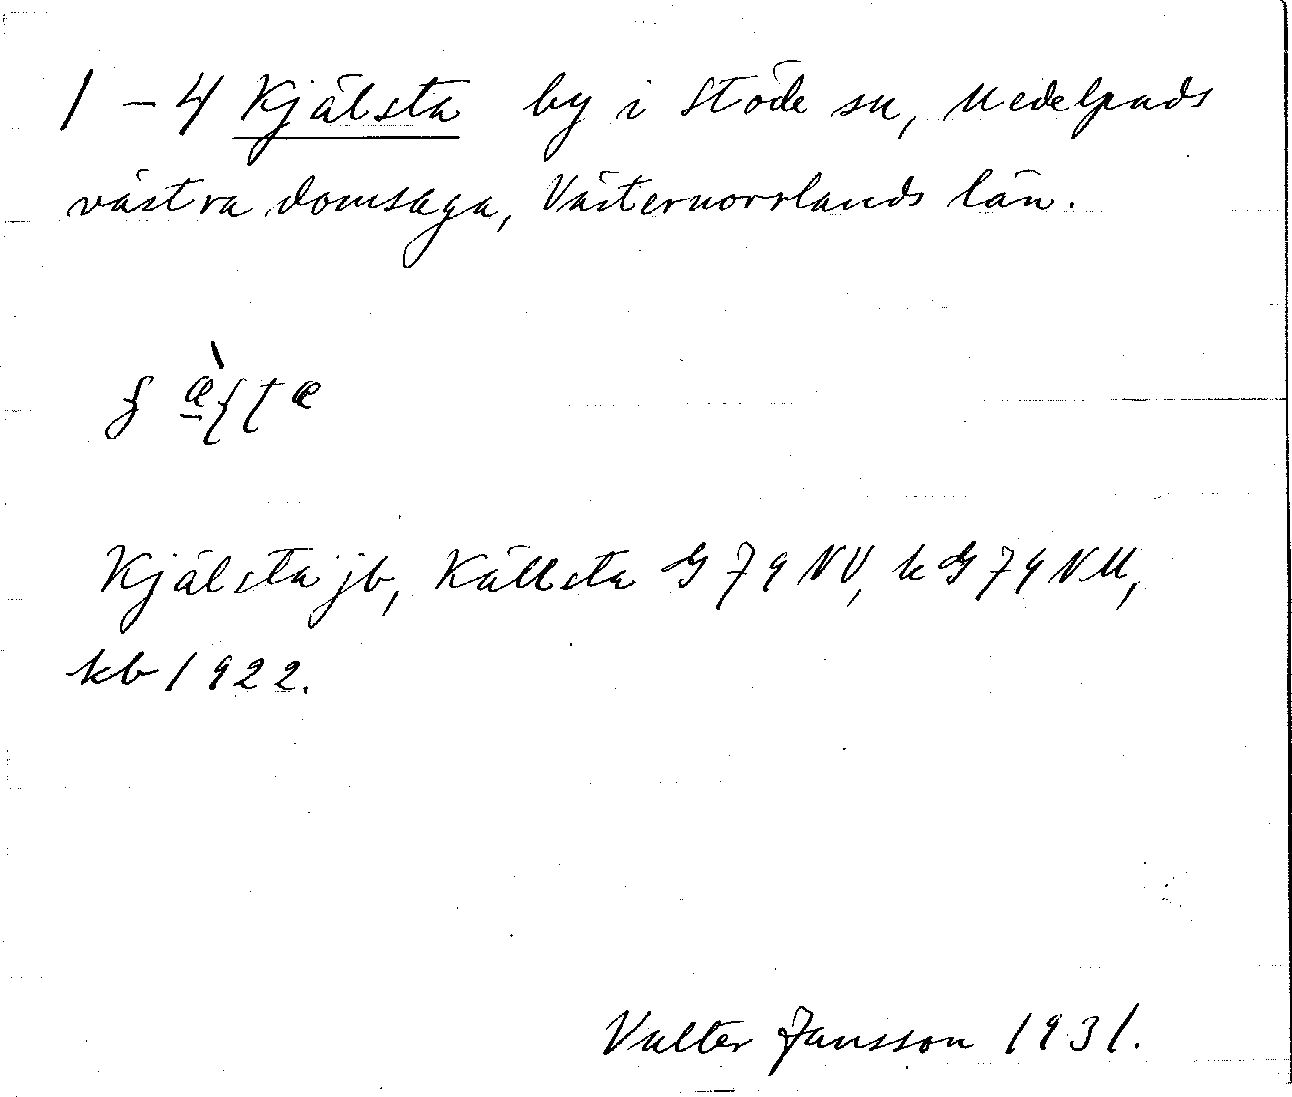 1–4 Kjälsta by i Stöde sn, Medelpads
västra domsaga, Västernorrlands län.
Kjälsta jb, Källsta G 79 NV, k G 79 NV,
kb 1922.
Valter Jansson 1931.